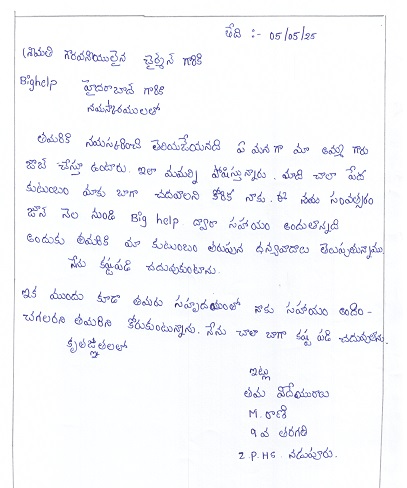 తేది :- 05/05/25
శ్రీమతి గౌరవనీయులైన చైర్మన్ గారికి
Bighelp హైదరాబాద్ గారికి
నమస్కారములతో
తమరికి నమస్కరించి తెలియచేయునది ఏ మనగా మా అమ్మ గారు
జాబ్ చేస్తూ ఉంటారు. ఇలా మమల్ని పోషిస్తున్నారు. మాది చాలా పేద
కుటుంబం మాకు బాగా చదవాలని కోరిక నాకు. ఈ నూతన సంవత్సరం
జూన్ నెల నుండి Big help ద్వారా సహాయం అందుతున్నది
అందుకు తమరికి మా కుటుంబం తరుపున ధన్యవాదాలు తెలుపుతున్నాము.
నేను కష్టపడి చదువుకుంటాను.
ఇక ముందు కూడా తమరు సహృదయంతో నాకు సహాయం అందిం-
చగలరని తమరిని కోరుకుంటున్నాను. నేను చాలా బాగా కష్ట పడి చదువుతాను.
కృతజ్ఞతలతో
ఇట్లు
తమ విధేయురాలు
M. రాణి
9 వ తరగతి
Z.P.HS. నడుపూరు.